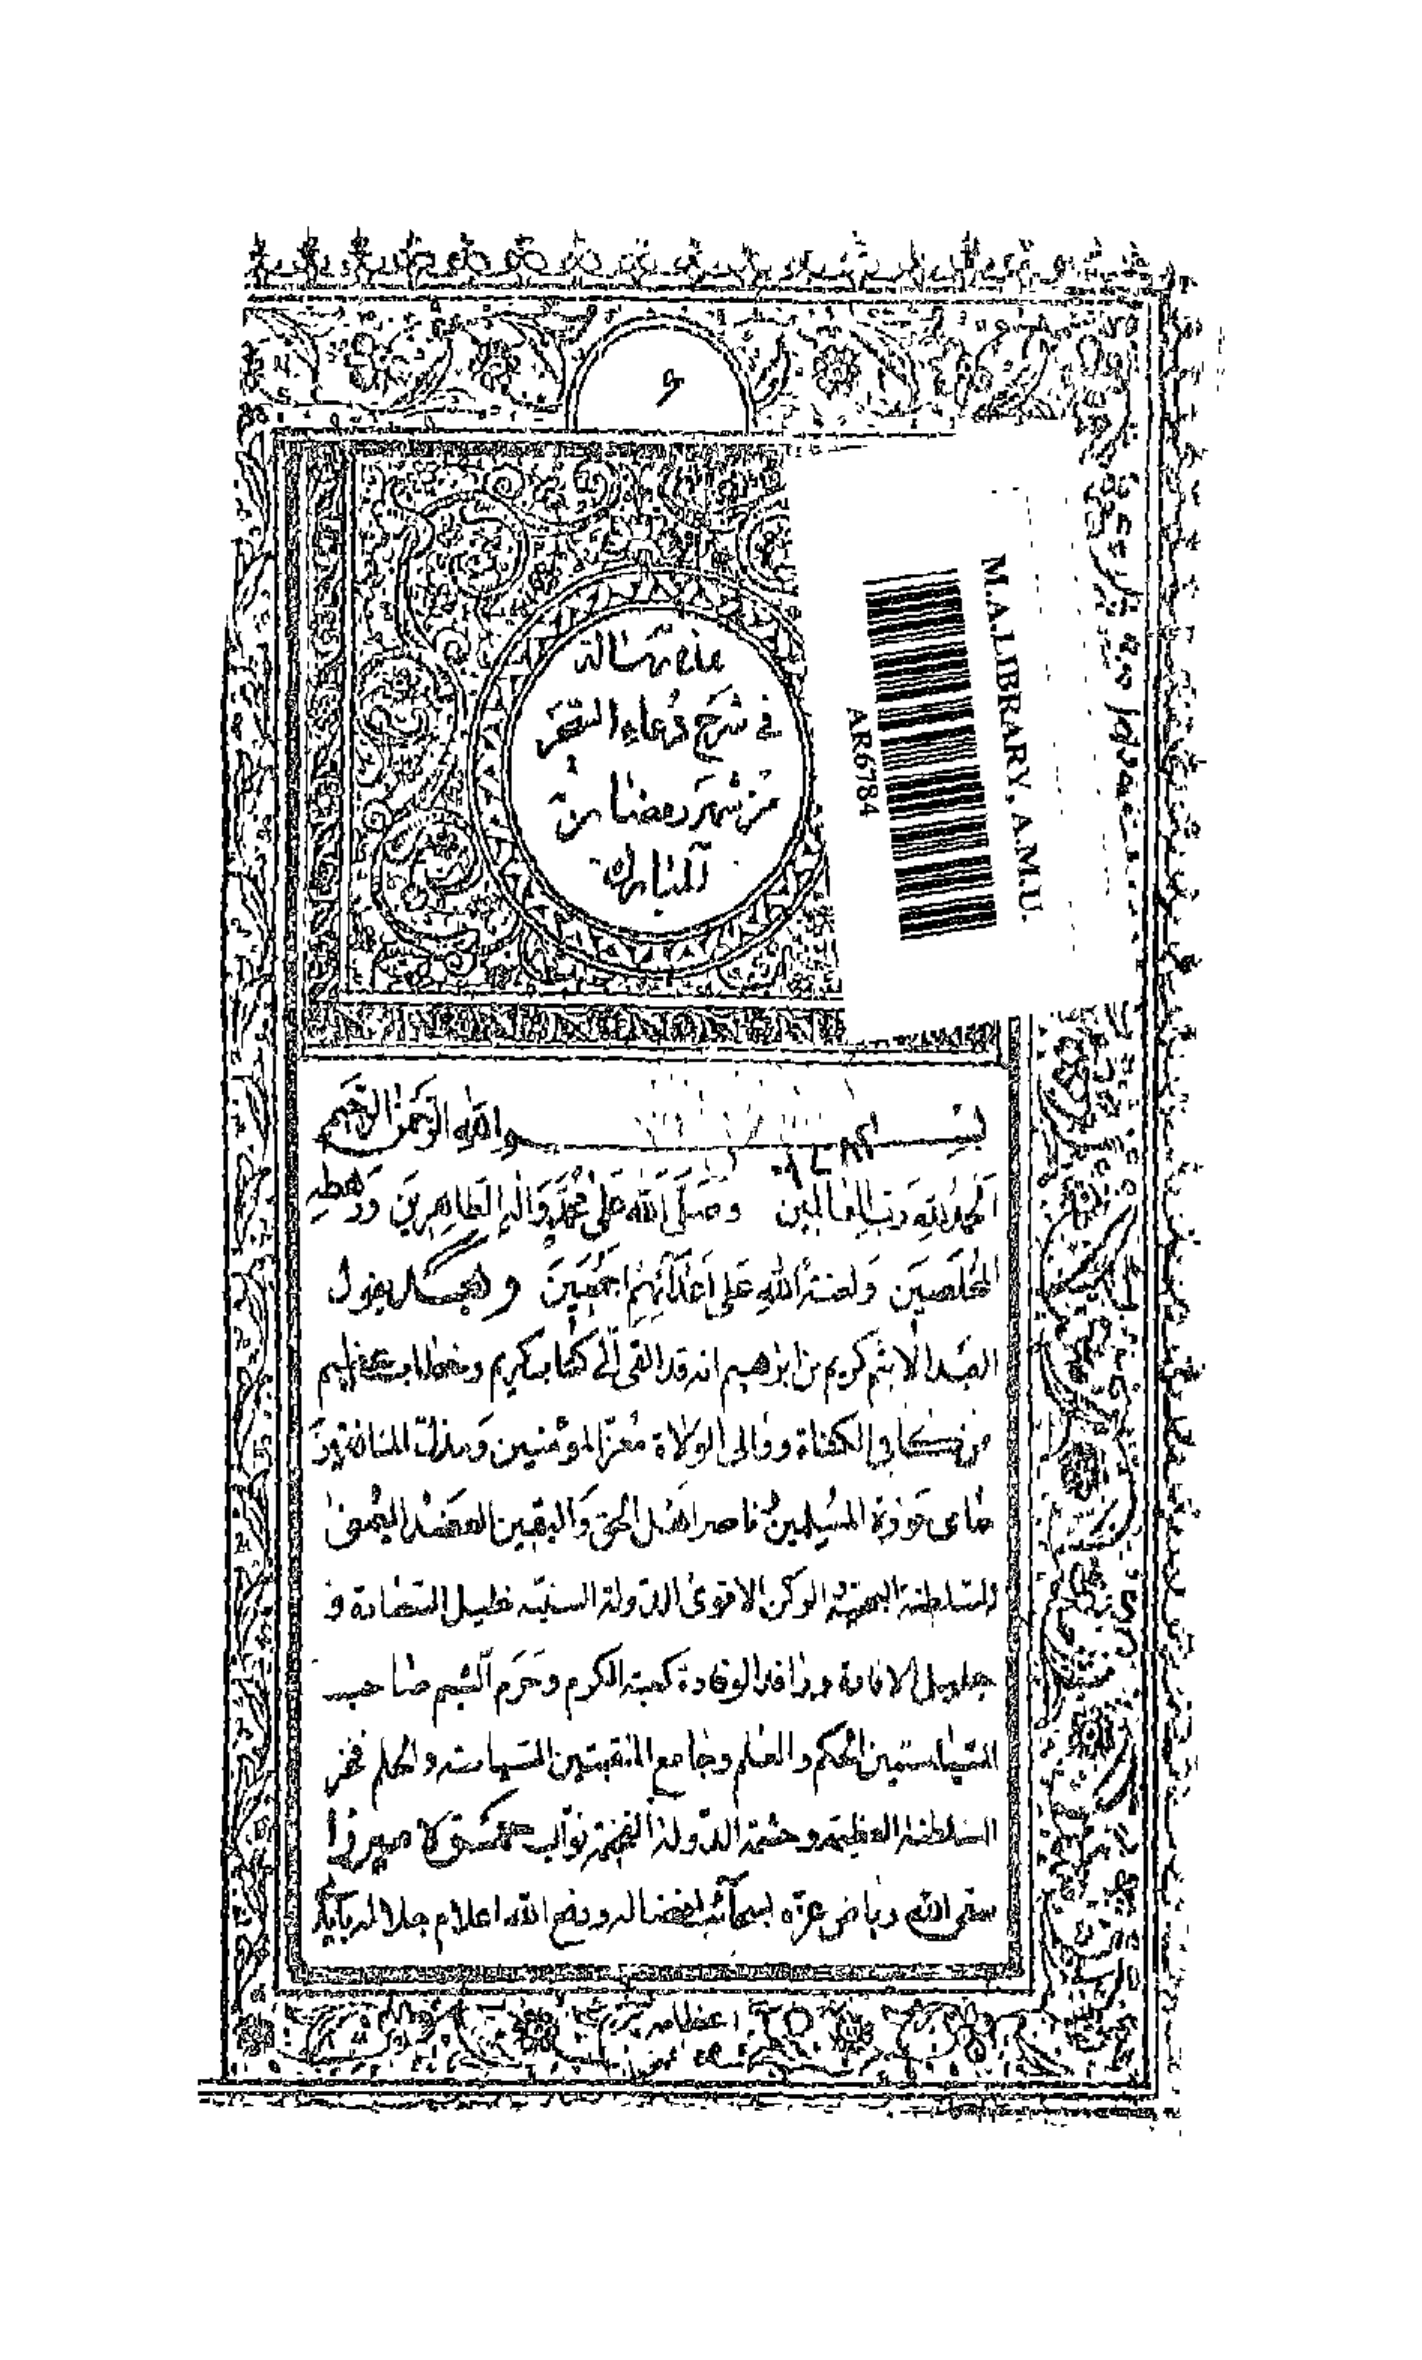 هذه رسالة
في شرح دعاء السحر
من شهر رمضان
المبارك
M.A.LIBRARY, A.M.U.
AR6784
بسم الله الرحمن الرحيم
الحمد لله رب العالمين وصلى الله على محمد واله الطاهرين ورهطه
المخلصين ولعنة الله على اعدائهم اجمعين وبعد يقول
العبد الاثيم كريم بن ابرهيم انه قد القى الى كتاب كريم وخطاب عظيم
من كافى الكفاة ووالى الولاة معز المؤمنين ومذل المنافقين
حامى حوزة المسلمين ناصر اهل الحق واليقين العضد اليمنى
للسلطنة البهية الركن الاقوى للدولة السنية خليل السعادة و
جليل الافادة ورافد الوفادة كعبة الكرم وحرم الشيم صاحب
السياستين الحكم والعلم وجامع المنقبتين السياسة والحلم فخر
السلطنة العظيمة وحشمة الدولة الفخيمة نواب ميرزا
سقى الله رياض عزه بسمآء افضاله ورفع الله اعلام جلاله